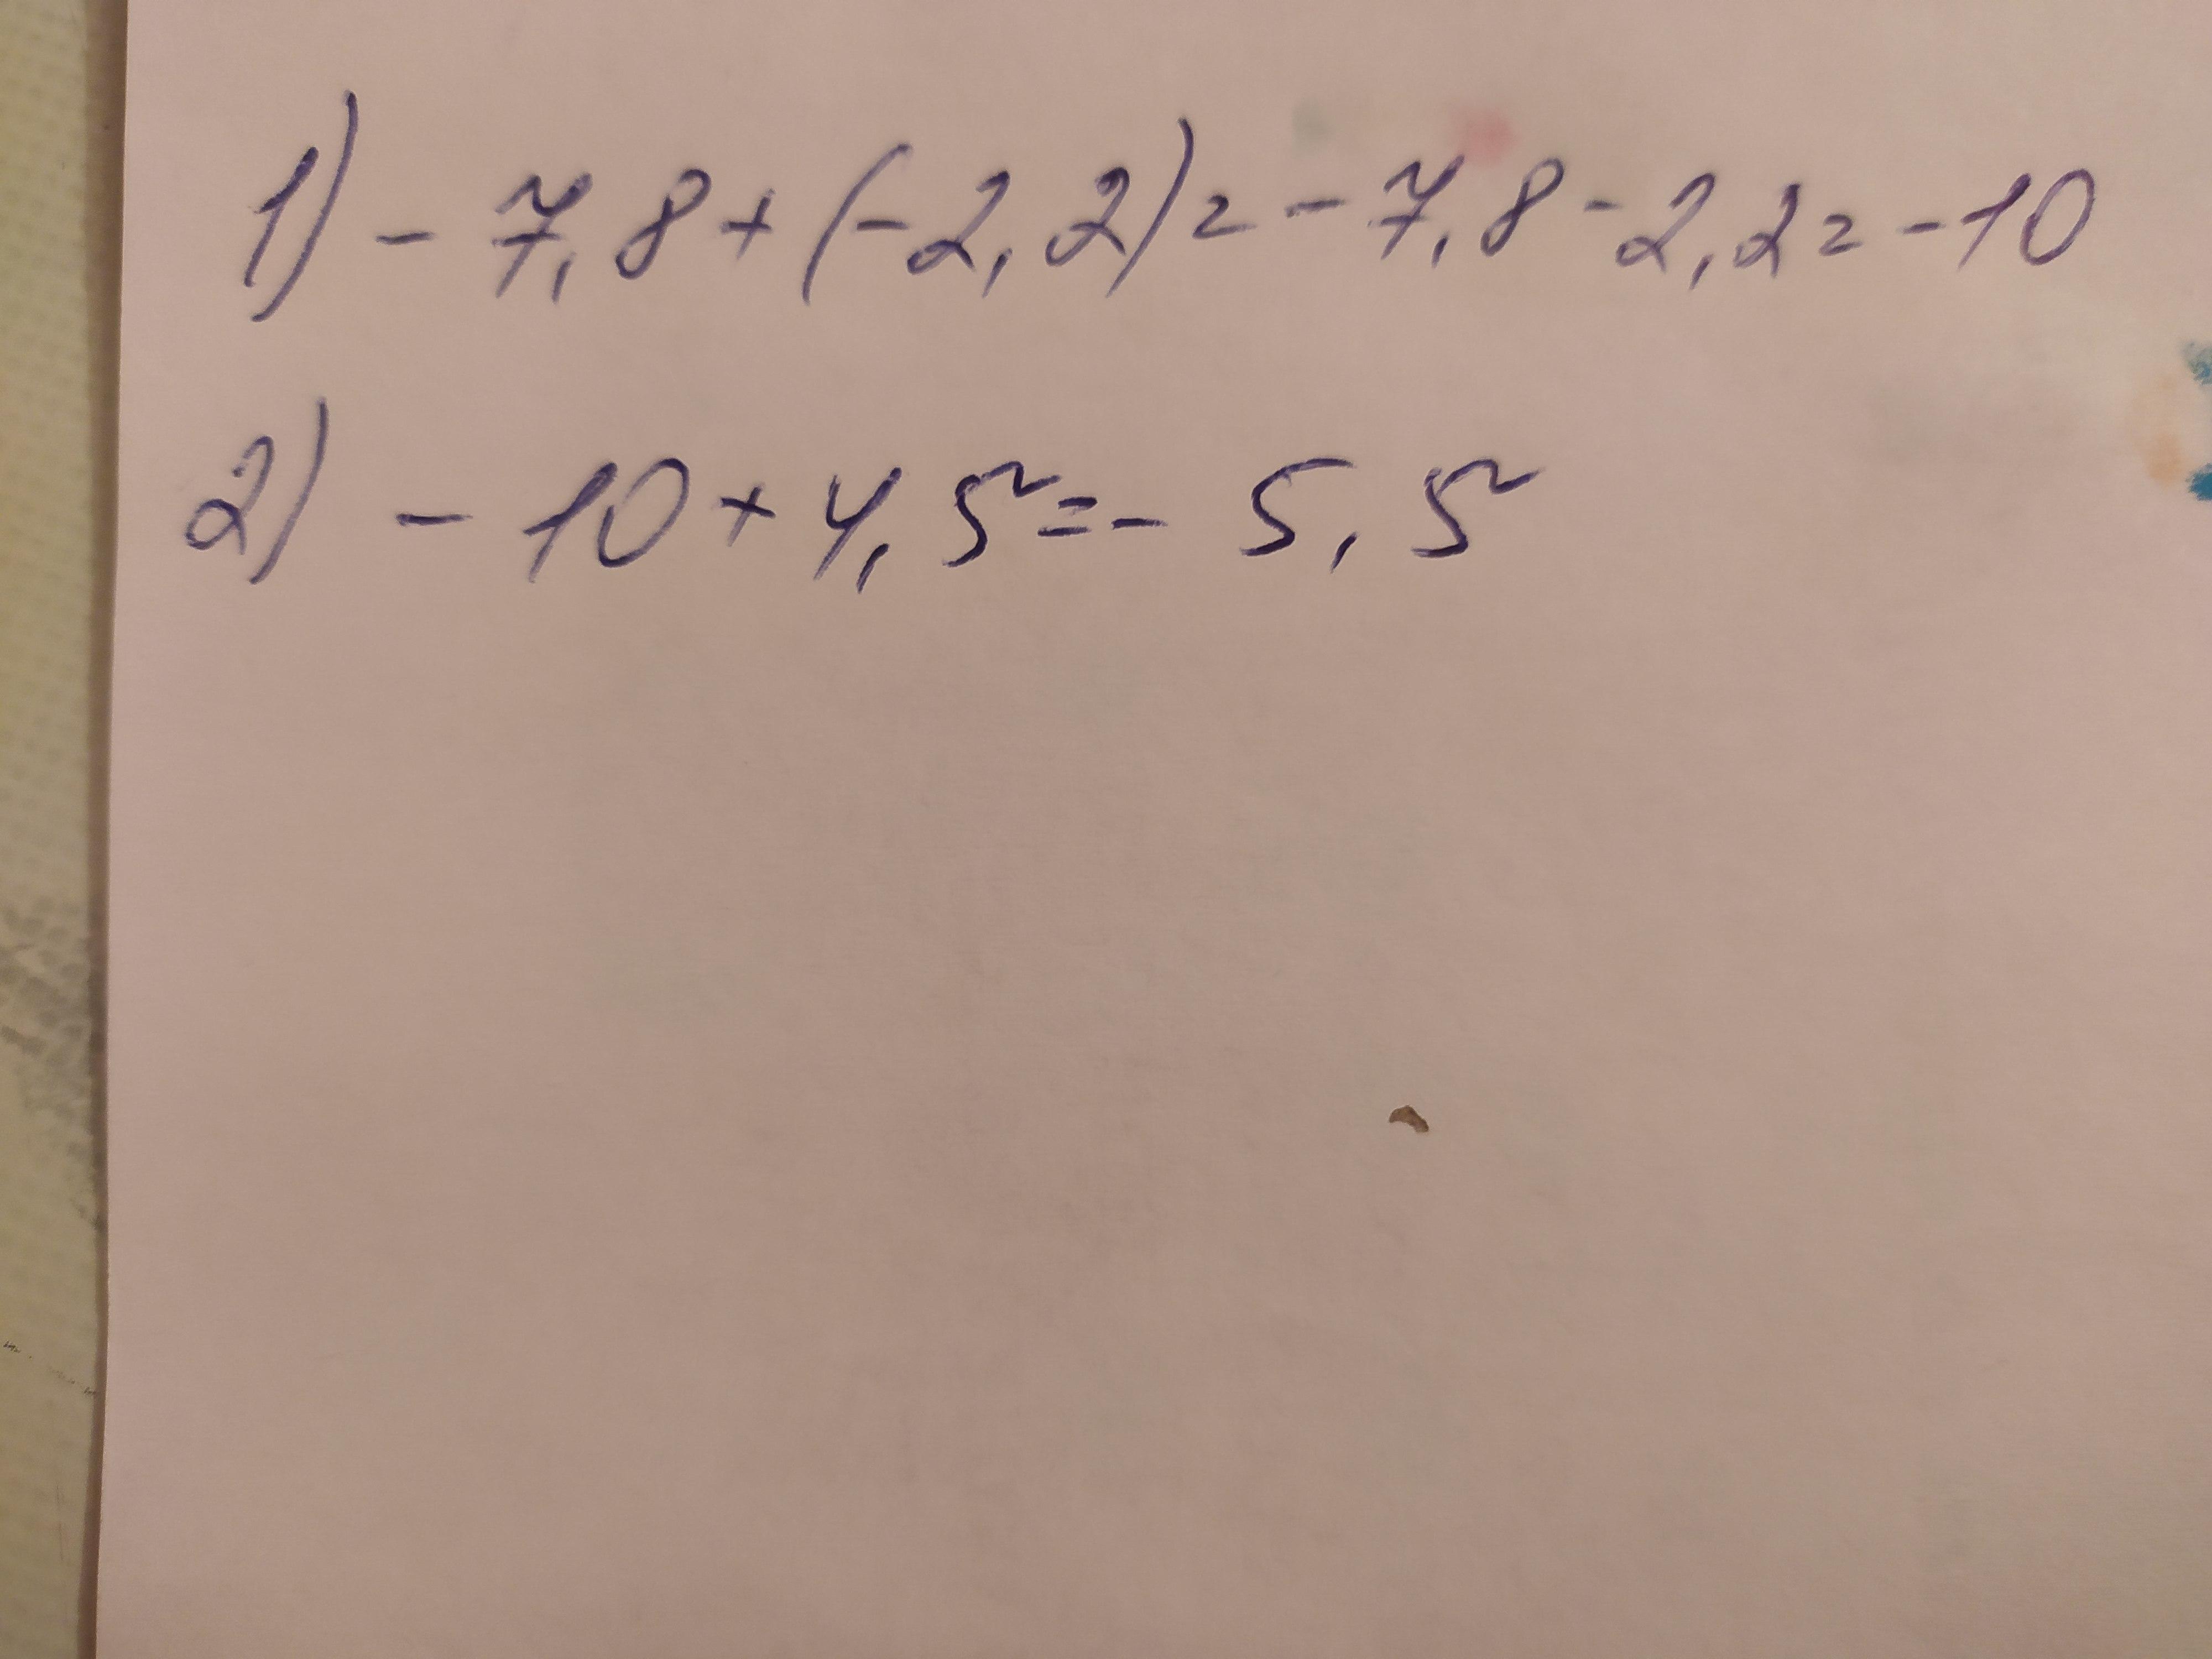 1) - 7,8 + (- 2,2) = - 7,8 - 2,2 = - 10
2) - 10 + 4,5 = - 5,5